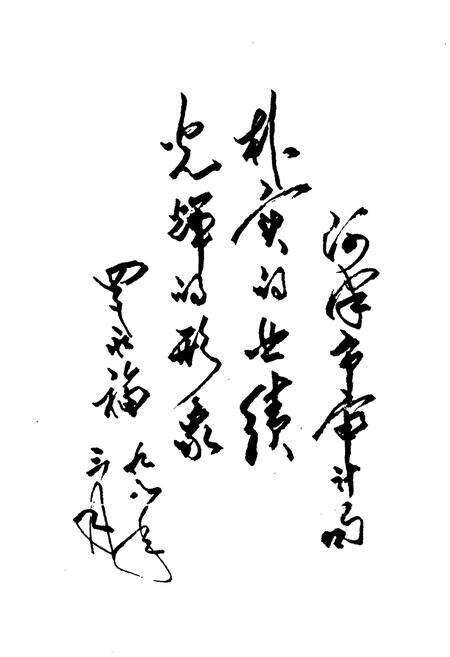 河津市审计局
朴实的业绩
光辉的形象
罗 福
九八年
三月